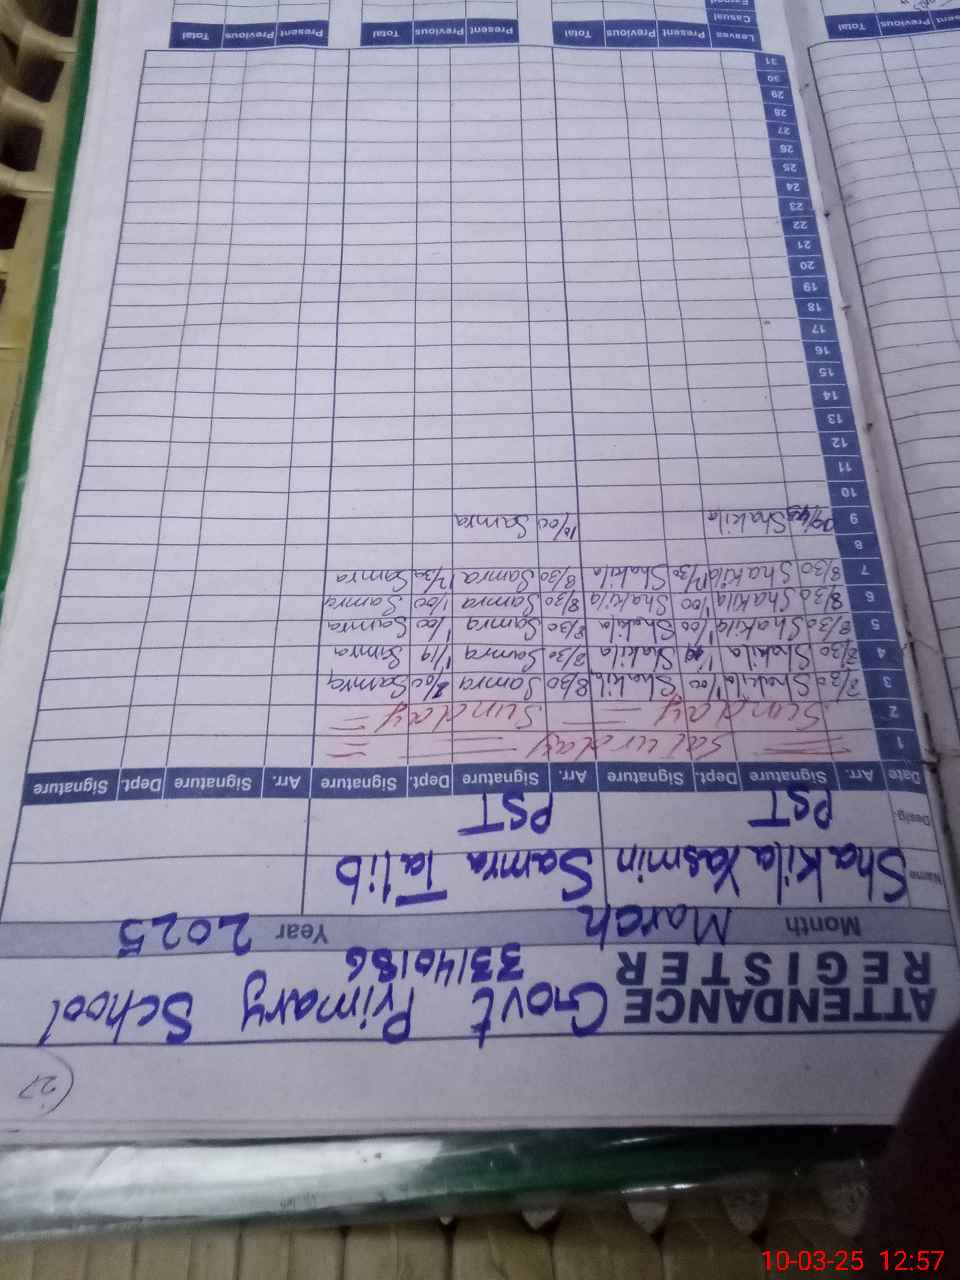 27
ATTENDANCE Govt Primary School
REGISTER 33140186
Month March Year 2025
Name Shakila Yasmin Samra Talib
Desig. PST PST
Date Arr. Signature Dept. Signature Arr. Signature Dept. Signature Arr. Signature Dept. Signature
1 Saturday
2 Sunday Sunday
3 8/30 Shakila 1/00 Shakila 8/30 Samra Samra
4 8/30 Shakila Shakila 8/30 Samra 1/19 Samra
5 8/30 Shakila 1/00 Shakila 8/30 Samra 1/00 Samra
6 8/30 Shakila 1/00 Shakila 8/30 Samra 1/00 Samra
7 8/30 Shakila 12/30 Shakila 8/30 Samra 12/30 Samra
8
9 Shakila 10/00 Samra
10
11
12
13
14
15
16
17
18
19
20
21
22
23
24
25
26
27
28
29
30
31
Leaves Present Previous Total Present Previous Total Present Previous Total
Casual
Earned
Present Previous Total
10-03-25 12:57